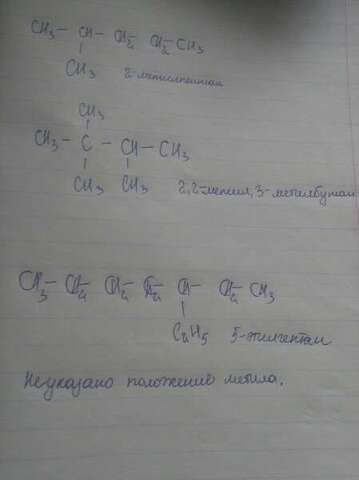 CH₃ – CH – CH₂ – CH₂ – CH₃
CH₃
2-метилпентан
CH₃
CH₃ – C – CH – CH₃
CH₃ CH₃
2,2-метил, 3-метилбутан
CH₃ – CH₂ – CH₂ – CH₂ – CH – CH₂ – CH₃
C₂H₅ 5-этилгептан
Не указано положение метила.